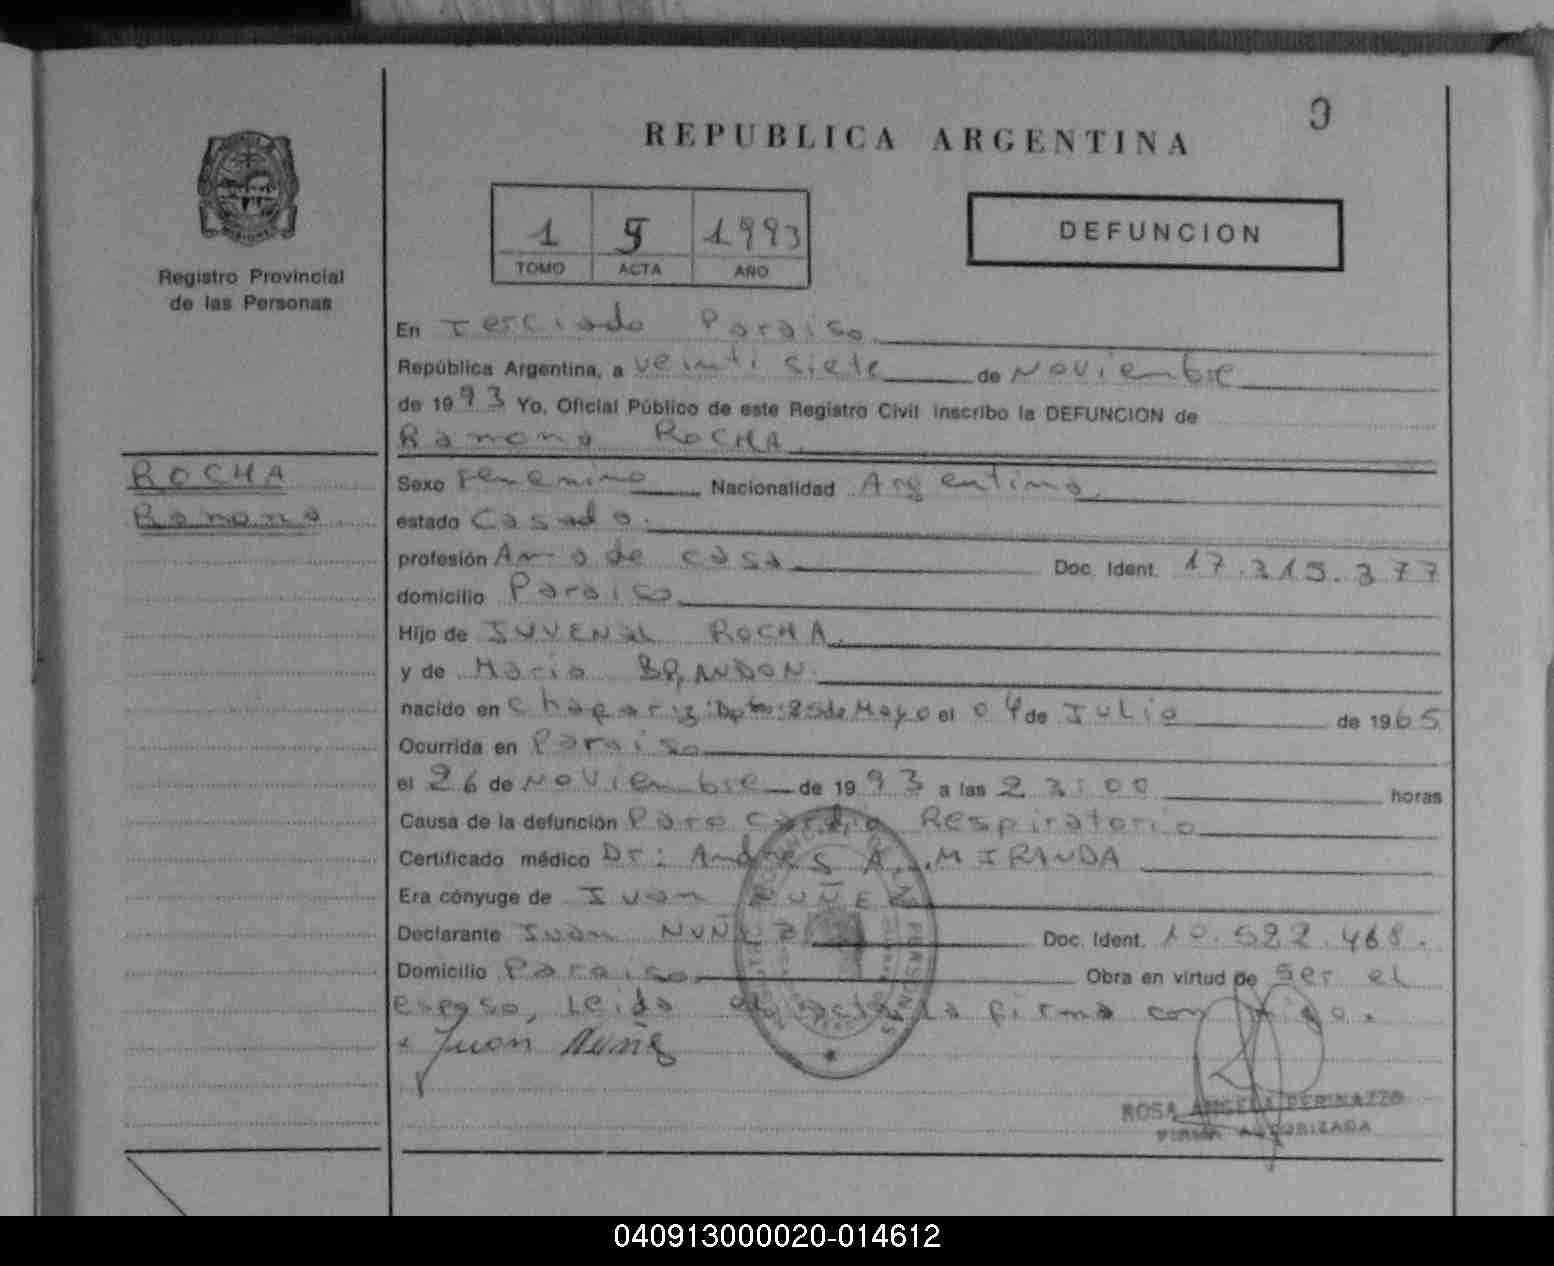 9
REPUBLICA ARGENTINA
1 9 1993
TOMO ACTA AÑO
DEFUNCION
Registro Provincial
de las Personas
En Terciado Paraiso
República Argentina, a veintisiete de Noviembre
de 1993 Yo, Oficial Público de este Registro Civil inscribo la DEFUNCION de
Ramona ROCHA
ROCHA
Ramona
Sexo femenino Nacionalidad Argentina.
estado Casada.
profesión Ama de casa Doc. Ident. 17.315.377
domicilio Paraiso
Hijo de JUVENAL ROCHA
y de Maria BRANDON
nacido en Chapariz: Dpto: 25 de Mayo el 04 de Julio de 1965
Ocurrida en Paraiso
el 26 de Noviembre de 1993 a las 23:00 horas
Causa de la defunción Paro Cardio Respiratorio
Certificado médico Dr: Andres A. MIRANDA
Era cónyuge de Juan NUÑEZ
Declarante Juan NUÑEZ Doc. Ident. 10.522.468.
Domicilio Paraiso Obra en virtud de ser el
esposo, Leida el acta la firma conmigo.
Juan Nuñez
ROSA ANGELA PERINAZZO
FIRMA AUTORIZADA
040913000020-014612